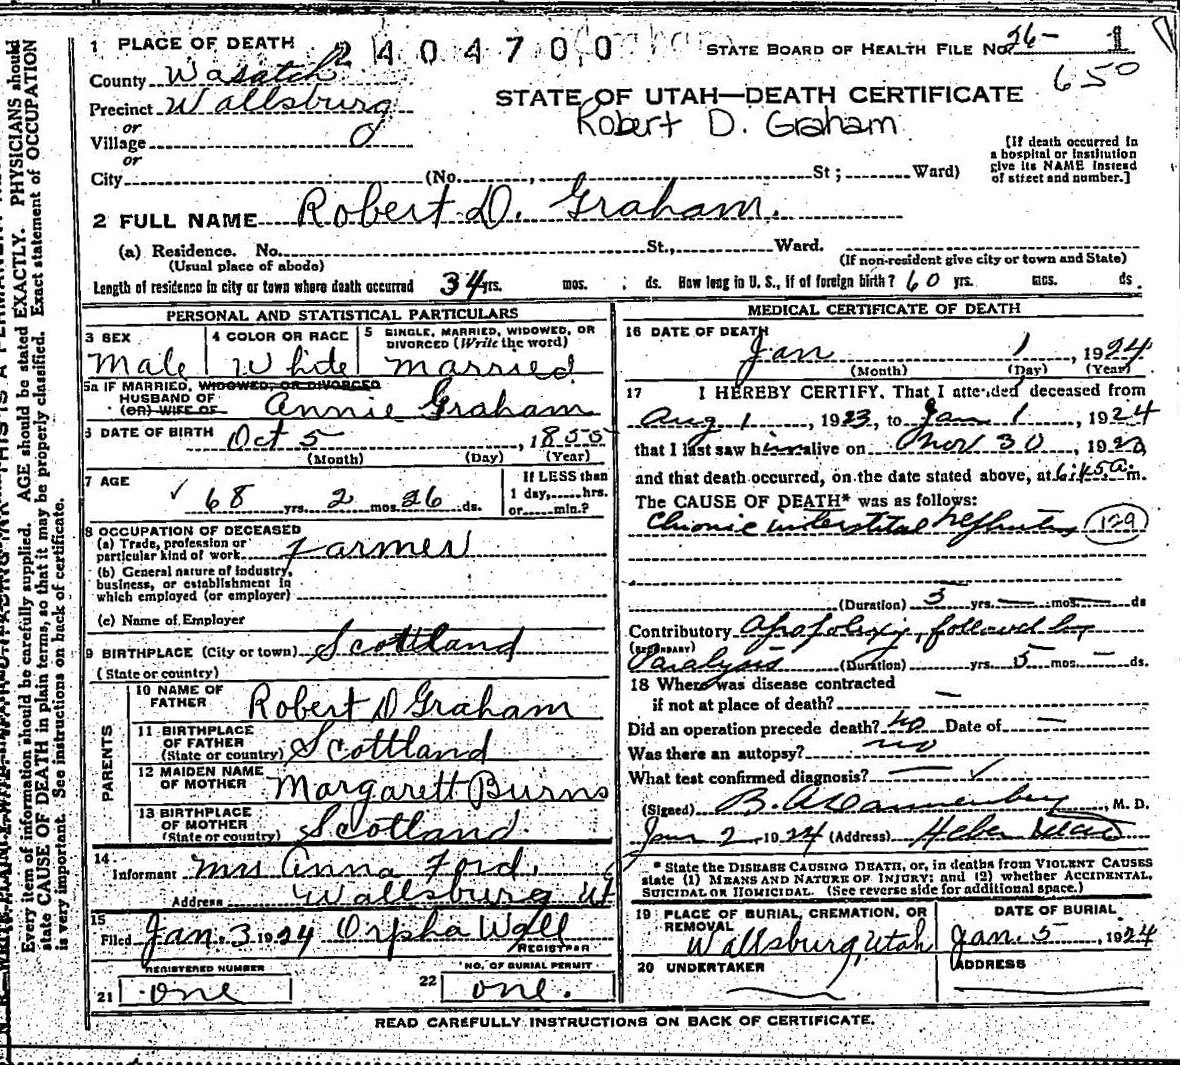 1 PLACE OF DEATH 2404700
STATE BOARD OF HEALTH FILE No. 26- 1
650
County Wasatch
Precinct Wallsburg
or
Village
or
City (No. , St ; Ward)
STATE OF UTAH—DEATH CERTIFICATE
Robert D. Graham
[If death occurred in
a hospital or institution
give its NAME instead
of street and number.]
2 FULL NAME Robert D. Graham.
(a) Residence. No. St., Ward.
(Usual place of abode) (If non-resident give city or town and State)
Length of residence in city or town where death occurred 34 yrs. mos. ds. How long in U. S., if of foreign birth? 60 yrs. mos. ds.
PERSONAL AND STATISTICAL PARTICULARS
3 SEX
Male
4 COLOR OR RACE
White
5 SINGLE, MARRIED, WIDOWED, OR
DIVORCED (Write the word)
married
5a IF MARRIED, WIDOWED, OR DIVORCED
HUSBAND OF
(OR) WIFE OF Annie Graham
6 DATE OF BIRTH Oct 5, 1855
(Month) (Day) (Year)
7 AGE
✓ 68 yrs. 2 mos. 26 ds.
If LESS than
1 day, hrs.
or min.?
8 OCCUPATION OF DECEASED
(a) Trade, profession or
particular kind of work farmer
(b) General nature of industry,
business, or establishment in
which employed (or employer)
(c) Name of Employer
9 BIRTHPLACE (City or town) Scottland
(State or country)
PARENTS
10 NAME OF
FATHER Robert D Graham
11 BIRTHPLACE
OF FATHER
(State or country) Scottland
12 MAIDEN NAME
OF MOTHER Margarett Burns
13 BIRTHPLACE
OF MOTHER
(State or country) Scotland.
14
Informant Mrs Anna Ford,
Address Wallsburg Ut
15
Filed Jan. 3 1924 Orpha Wall
REGISTRAR
REGISTERED NUMBER
21 one
NO. OF BURIAL PERMIT
22 one.
MEDICAL CERTIFICATE OF DEATH
16 DATE OF DEATH
Jan 1, 1924
(Month) (Day) (Year)
17 I HEREBY CERTIFY, That I attended deceased from
Aug 1, 1923, to Jan 1, 1924
that I last saw him alive on Nov 30, 1923,
and that death occurred, on the date stated above, at 6:45 a m.
The CAUSE OF DEATH* was as follows:
Chronic interstital Nephritis 129
(Duration) 3 yrs. — mos. — ds
Contributory Apoplexy, followed by
(SECONDARY)
Paralysis (Duration) yrs. 5 mos. — ds.
18 Where was disease contracted
if not at place of death? —
Did an operation precede death? no Date of —
Was there an autopsy? no
What test confirmed diagnosis? — ✓
(Signed) , M. D.
Jan 2 1924 (Address) Heber
* State the DISEASE CAUSING DEATH, or, in deaths from VIOLENT CAUSES
state (1) MEANS AND NATURE OF INJURY; and (2) whether ACCIDENTAL,
SUICIDAL OR HOMICIDAL. (See reverse side for additional space.)
19 PLACE OF BURIAL, CREMATION, OR
REMOVAL
Wallsburg, Utah
DATE OF BURIAL
Jan. 5, 1924
20 UNDERTAKER
ADDRESS
READ CAREFULLY INSTRUCTIONS ON BACK OF CERTIFICATE.
Every item of information should be carefully supplied. AGE should be stated EXACTLY. PHYSICIANS should
state CAUSE OF DEATH in plain terms, so that it may be properly classified. Exact statement of OCCUPATION
is very important. See instructions on back of certificate.